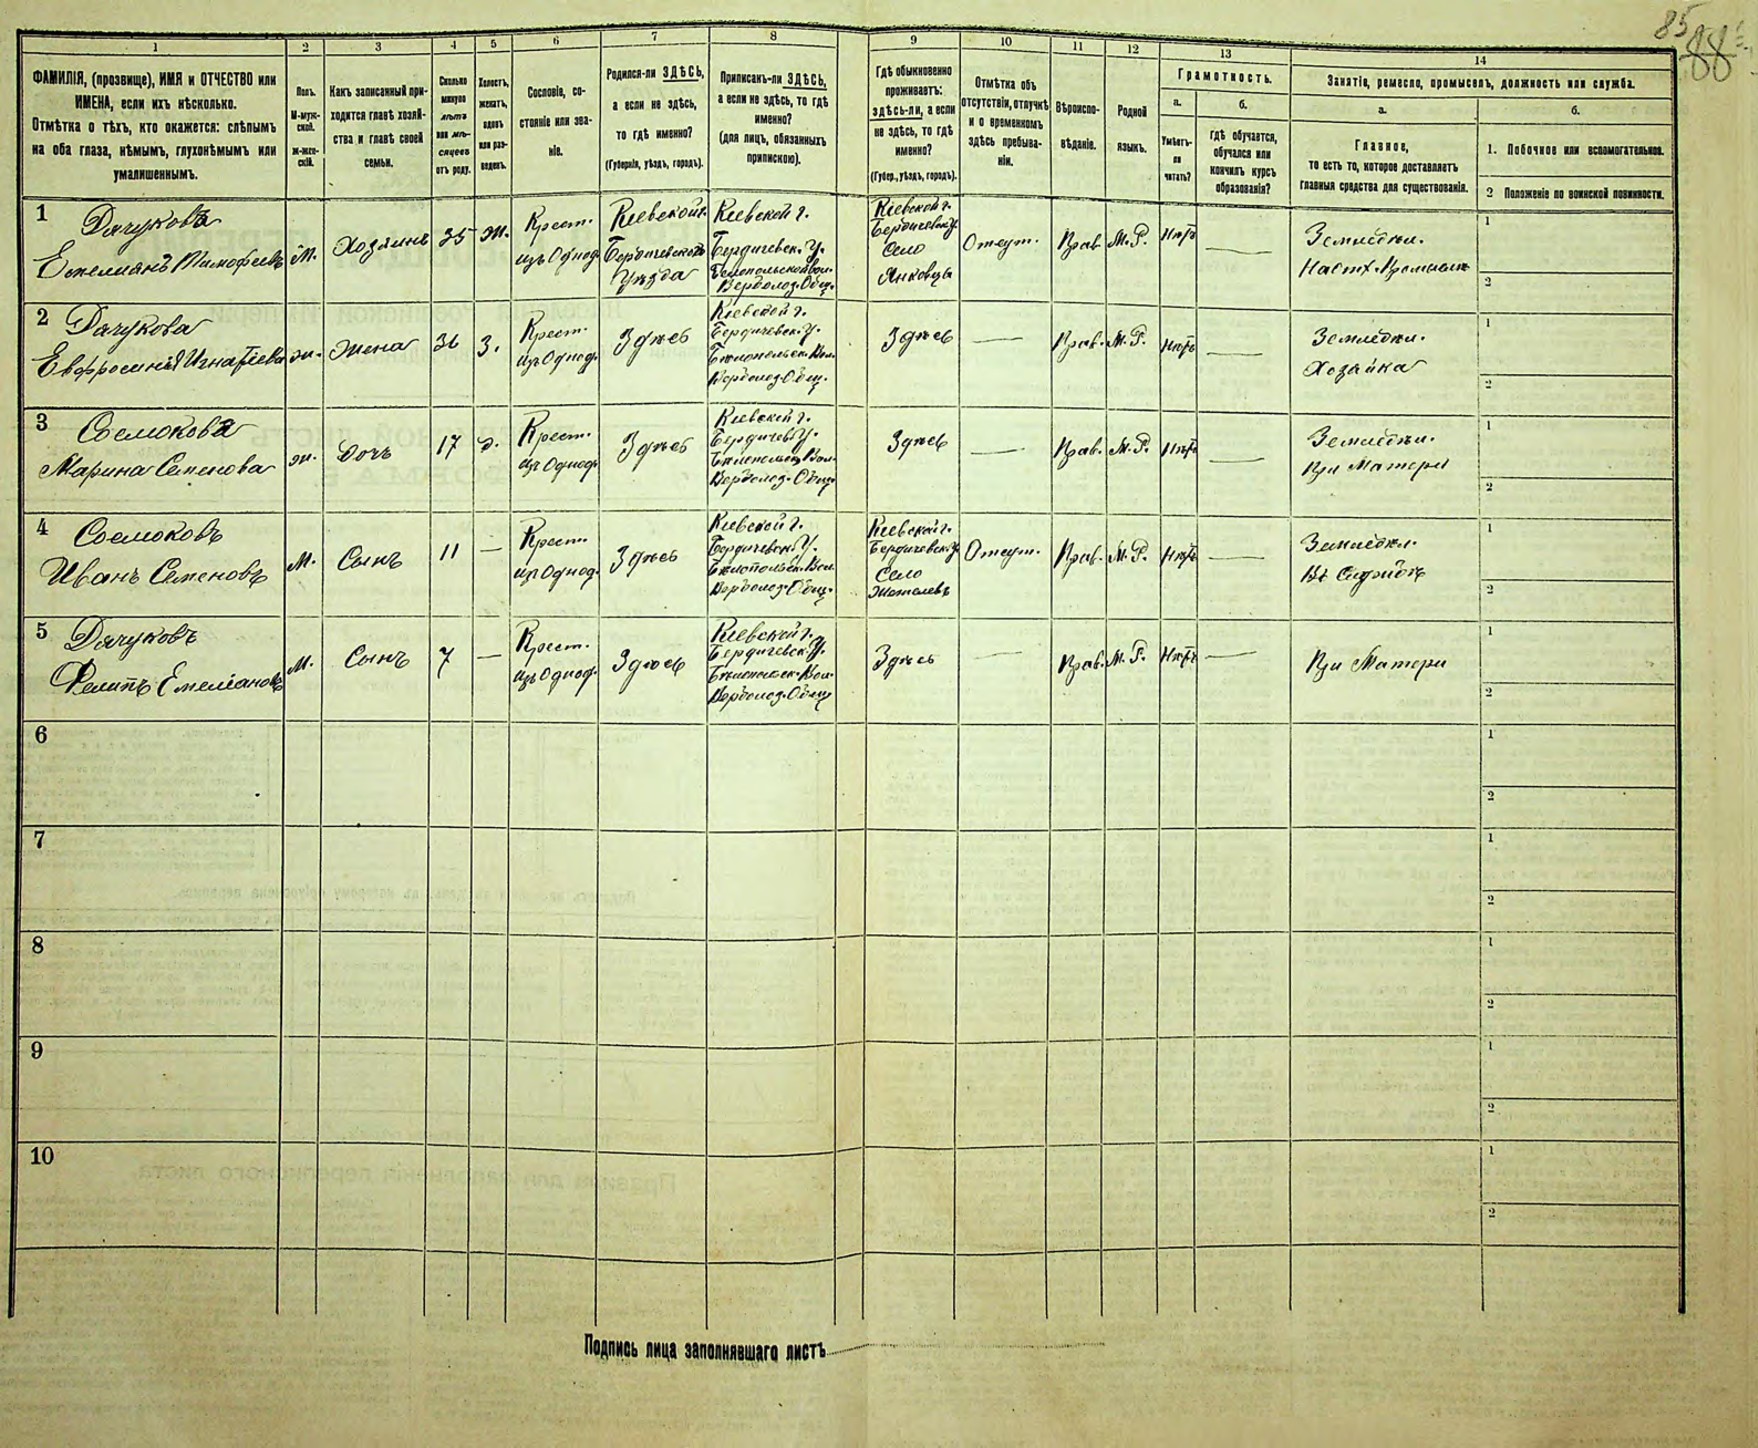 85
88
1 2 3 4 5 6 7 8 9 10 11 12 13 14
ФАМИЛІЯ, (прозвище), ИМЯ и ОТЧЕСТВО или
ИМЕНА, если ихъ нѣсколько.
Отмѣтка о тѣхъ, кто окажется: слѣпымъ
на оба глаза, нѣмымъ, глухонѣмымъ или
умалишеннымъ.
Полъ.
М-муж-
ской.
Ж-жен-
скій.
Какъ записанный при-
ходится главѣ хозяй-
ства и главѣ своей
семьи.
Сколько
минуло
лѣтъ
или мѣ-
сяцевъ
отъ роду.
Холостъ,
женатъ,
вдовъ
или раз-
веденъ.
Сословіе, со-
стояніе или зва-
ніе.
Родился-ли ЗДѢСЬ,
а если не здѣсь,
то гдѣ именно?
(Губернія, уѣздъ, городъ).
Приписанъ-ли ЗДѢСЬ,
а если не здѣсь, то гдѣ
именно?
(для лицъ, обязанныхъ
припиской).
Гдѣ обыкновенно
проживаетъ:
здѣсь-ли, а если
не здѣсь, то гдѣ
именно?
(Губер., уѣздъ, городъ).
Отмѣтка объ
отсутствіи, отлучкѣ
и о временномъ
здѣсь пребыва-
ніи.
Вѣроиспо-
вѣданіе.
Родной
языкъ.
Грамотность.
а.
Умѣетъ-
ли
читать?
б.
Гдѣ обучается,
обучался или
кончилъ курсъ
образованія?
Занятіе, ремесло, промыселъ, должность или служба.
а.
Главное,
то есть то, которое доставляетъ
главныя средства для существованія.
б.
1. Побочное или вспомогательное.
2 Положеніе по воинской повинности.
1 Дячуковъ
Емелианъ Тимофеевъ
М.
Хозяинъ
35
Ж.
Крест.
изъ Однод.
Кіевской г.
Бердичевскаго
Уѣзда
Кіевской г.
Бердичевск. У.
Верболоз. Общ.
Кіевской г.
Бердичевск. У.
Село
Янковцы
Отсут.
Прав.
М. Р.
Нѣтъ
Земледѣл.
1
2
2 Дячукова
Евфросинія Игнатіева
ж.
Жена
36
З.
Крест.
изъ Однод.
Здѣсь
Кіевской г.
Бердичевск. У.
Бѣлопольск. Вол.
Верболоз. Общ.
Здѣсь
—
Прав.
М. Р.
Нѣтъ
—
Земледѣл.
Хозяйка
1
2
3
Марина Семенова
ж.
Дочь
17
Д.
Крест.
изъ Однод.
Здѣсь
Кіевской г.
Бердичев. У.
Бѣлопольск. Вол.
Верболоз. Общ.
Здѣсь
—
Прав.
М. Р.
Нѣтъ
—
Земледѣл.
При Матери
1
2
4
Иванъ Семеновъ
М.
Сынъ
11
—
Крест.
изъ Однод.
Здѣсь
Кіевской г.
Бердичевск. У.
Бѣлопольск. Вол.
Верболоз. Общ.
Кіевской г.
Бердичевск. У.
Село
Отсут.
Прав.
М. Р.
Нѣтъ
—
Земледѣл.
1
2
5 Дячуковъ
Филипъ Емеліановъ
М.
Сынъ
7
—
Крест.
изъ Однод.
Здѣсь
Кіевской г.
Бердичевск. У.
Бѣлопольск. Вол.
Верболоз. Общ.
Здѣсь
—
Прав.
М. Р.
Нѣтъ
—
При Матери
1
2
6
1
2
7
1
2
8
1
2
9
1
2
10
1
2
Подпись лица заполнявшаго листъ